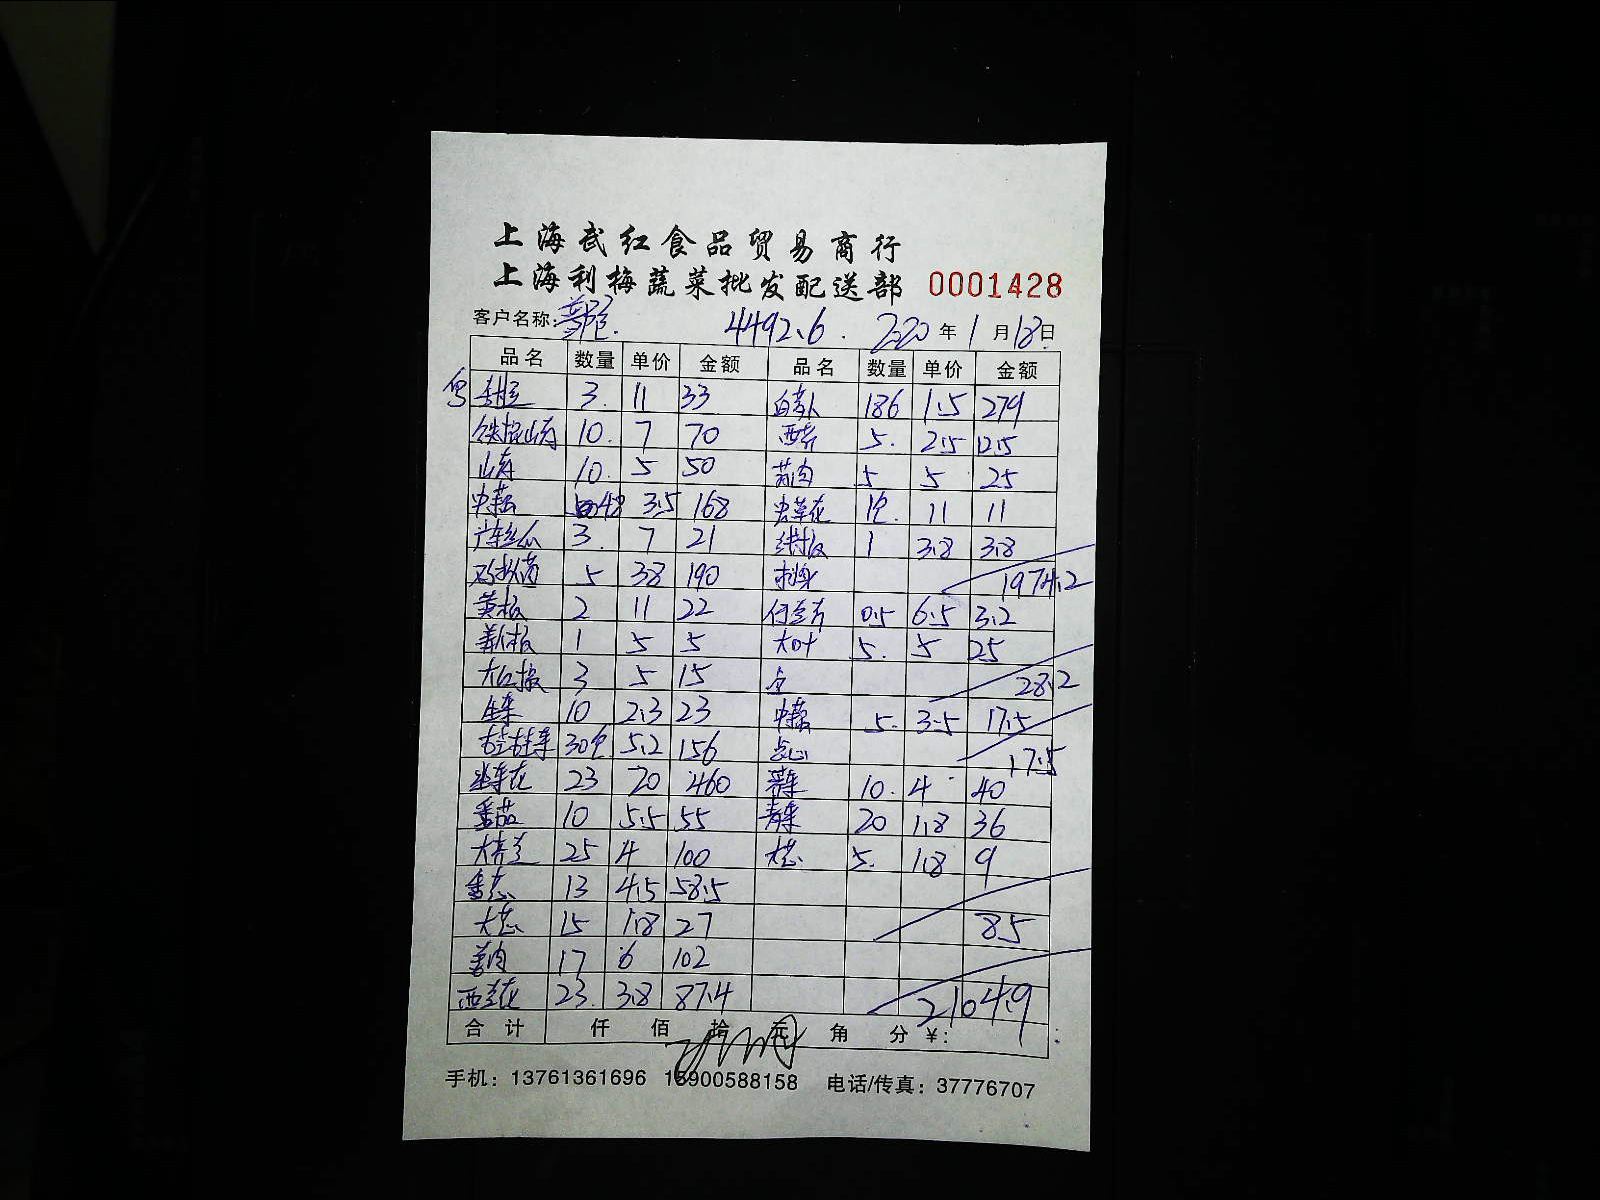 上海武红食品贸易商行
上海利梅蔬菜批发配送部 0001428
客户名称: 4492.6. 2020年1月18日
品名 数量 单价 金额 品名 数量 单价 金额
3. 11 33 186 1.5 279
铁棍山药 10. 7 70 西芹 5. 2.5 12.5
山药 10. 5 50 5 5 25
中藕 48 3.5 168 虫草花 1包. 11 11
广东丝瓜 3. 7 21 1 3.8 3.8
鸡枞菌 5 38 190 1974.2
黄椒 2 11 22 0.5 6.5 3.2
美人椒 1 5 5 大叶 5. 5 25
大红椒 3 5 15 28.2
生菜 10 2.3 23 中藕 5. 3.5 17.5
30包 5.2 156 点心 17.5
23 20 460 10. 4 40
番茄 10 5.5 55 青菜 20 1.8 36
25 4 100 大葱 5. 1.8 9
13 4.5 58.5
大葱 15 1.8 27 85
17 6 102
西兰花 23. 3.8 87.4 2104.9
合计 仟 佰 拾 元 角 分 ¥:
手机: 13761361696 15900588158 电话/传真: 37776707